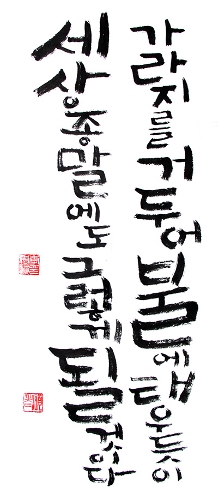 가라지를 거두어 불에 태우듯이
세상 종말에도 그렇게 될 것이다